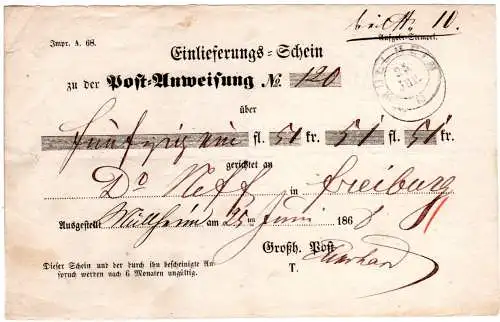 beil. No. 10.
Impr. A. 68.
Aufgabe-Stempel.
Einlieferungs-Schein
MUELLHEIM 25 JUN.
zu der Post-Anweisung No. 120
über
fünfzig ein fl. 51 kr. 51 fl. 51 kr.
gerichtet an
Dr Neff in Freiburg
Ausgestellt Müllheim am 25 ten Juni 1868
Großh. Post
T.
Dieser Schein und der durch ihn bescheinigte An-
spruch werden nach 6 Monaten ungültig.